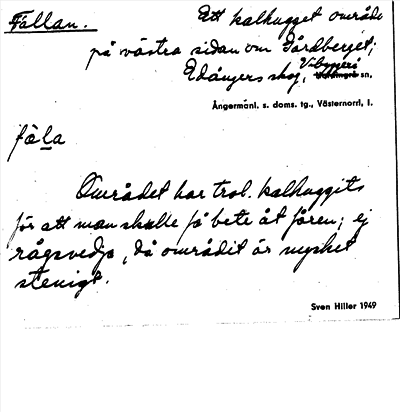 Fällan.
Ett kalhugget område
på västra sidan om Gårdberget;
Edångers skog, Vibyggerå sn,
Ångermanl. s. doms. tg., Västernorrl. l.
fäla
Området har trol. kalhuggits
för att man skulle få bete åt fåren; ej
rågsvedja, då området är mycket
stenigt.
Sven Hiller 1949